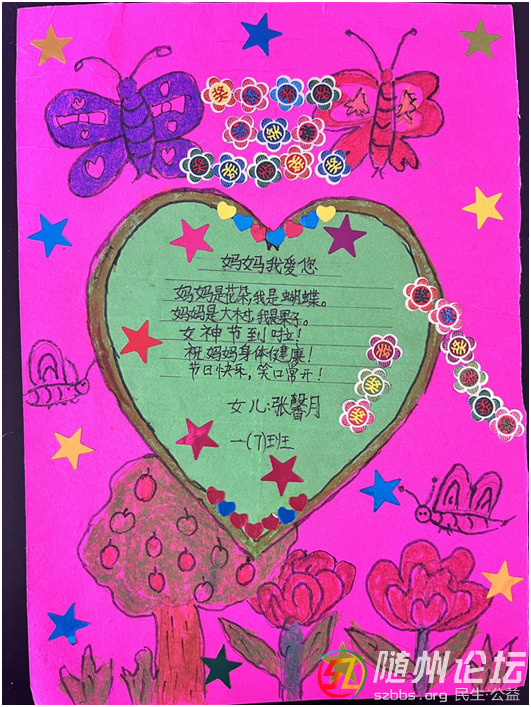 奖 奖 奖 奖
奖 奖 奖
奖 奖 奖 奖 奖
妈妈我爱您
妈妈是花朵,我是蝴蝶。
妈妈是大树,我是果子。
女神节到啦!
祝妈妈身体健康!
节日快乐,笑口常开!
女儿:张馨月
一(7)班
奖
奖
奖
奖
奖
奖
奖
奖
奖
随州论坛
szbbs.org 民生·公益